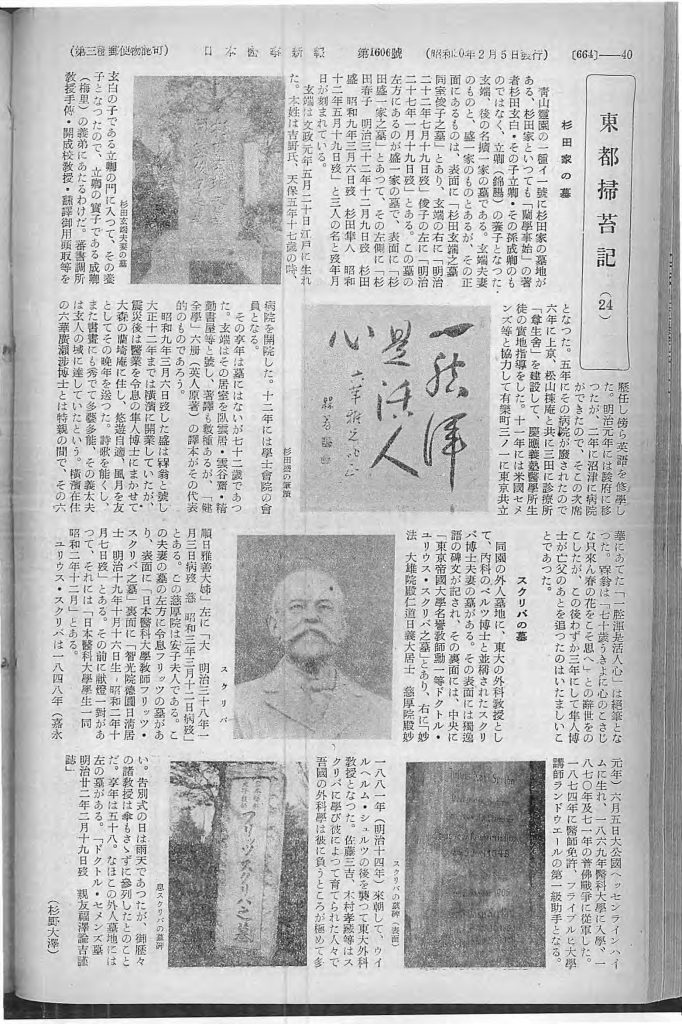 (第三種郵便物認可)
日本醫事新報
第1606號
(昭和30年2月5日發行)
[664]—40
東都掃苔記(24)
杉田家の墓
靑山靈園の一種イ一號に杉田家の墓地が
ある、杉田家といつても「蘭學事始」の著
者杉田玄白・その子立卿・その孫成卿のも
のではなく、立卿(錦膓)の養子となつた・
玄端、後の名擴一家の墓である。玄端夫妻
のものと、盛一家のものとあるが、その正
面にあるものは、表面に「杉田玄端之墓
同室俊子之墓」とあり、玄端の右に「明治
二十二年七月十九日歿」俊子の左に「明治
二十七年一月十九日歿」とある。この墓の
左方にあるのが盛一家の墓で、表面に「杉
田盛一家之墓」とあつて、その左側に「杉
田春子 明治三十二年十二月九日歿 杉田
盛 昭和九年三月六日歿 杉田隼人 昭和
十二年五月十九日歿」と三人の名と歿年月
日が刻まれている。
玄端は文政元年五月二十日江戸に生れ
た。本姓は吉野氏、天保五年十七歳の時、
杉田玄端夫妻の墓
玄白の子である立卿の門に入つて、その養
子となつたので、立卿の實子である成卿
(梅里)の義弟にあたるわけだ。蕃書調所
敎授手傳・開成校敎授・飜譯御用頭取等を
歷任し傍ら英語を修學し
た。明治元年には駿府に移
つたが、二年に沼津に病院
ができたので、そこの次席
となつた。五年にその病院が廢されたので
六年に上京、松山棟庵と共に三田に診療所
「尊生舍」を建設して、慶應義塾醫學所生
徒の實地指導をした。十一年には米國セメ
ンズ等と協力して有樂町三ノ一に東京共立
杉田盛の筆蹟
一腔渾
是活人
心
病院を開院した。十二年には學士會院の會
員となる。
その享年は墓にはないが七十二歲であつ
た。玄端はその居室を臥雲居・雲谷齋・精
勤書屋等と號し、著譯も數種あるが、「健
全學」六册(英人原著)の譯本がその代表
的のものであろう。
昭和九年三月六日歿した盛は冧翁と號し
大正十二年までは橫濱に開業していたが、
震災後は醫業を令息の隼人博士にまかせて
大森の龍埼庵に住し、悠遊自適、風月を友
としてその晩年を送つた。詩歌を能くし、
また書畫にも秀でて多藝多能、その義太夫
は玄人の域に達していたという。橫濱在住
の六華廣瀨渉博士とは特親の間で、その六
華にあてた「一腔渾是活人心」は絕筆とな
つた。冧翁は「七十歲うきよに心のこさじ
な只來ん春の花をこそ思へ」との辭世をの
こしたが、この後わずか三年にして隼人博
士が亡父のあとを追つたのはいたましいこ
とであつた。
スクリバの墓
同園の外人墓地に、東大の外科敎授とし
て、內科のベルツ博士と並稱されたスクリ
バ博士夫妻の墓がある。その表面には獨逸
語の碑文が記され、その裏面には、中央に
「東京帝國大學名譽敎師勳一等ドクトル・
ユリウス・スクリバ之墓」とあり、右に「妙
法 大雄院殿仁道日義大居士 慈厚院殿妙
スクリバ
順日雅善大姉」左に「大 明治三十八年一
月三日病歿 慈 昭和三年三月十二日病歿」
とある。この慈厚院は安子夫人である。こ
の夫妻の墓の左方に令息フリッツの墓があ
り、表面に「日本醫科大學敎師フリッツ・
スクリバ之墓」裏面に「智光院德圓日淸居
士 明治十九年十月十六日生—昭和二年十
月七日歿」とある。その前に献燈一對があ
つて、それには「日本醫科大學學生一同
昭和二年十二月」とある。
ユリウス・スクリバは一八四八年(嘉永
元年)六月五日大公國ヘッセンラインハイ
ムに生れ、一八六九年醫科大學に入學、一
八七〇年及七一年の普佛戰爭に從軍した。
一八七四年に醫師免許、フライブルヒ大學
講師ランドウエールの第一級助手となる。
スクリバの墓碑(表面)
一八八一年(明治十四年)來朝して、ウイ
ルヘルム・シュルツの後を襲つて東大外科
敎授となつた。佐藤三吉、木村孝藏等はス
クリバに學び彼によつて育てられた人々で
吾國の外科學は彼に負うところが極めて多
息スクリバの墓碑
フリッツスクリバ之墓
い。告別式の日は雨天であつたが、御歷々
の諸敎授は傘もさゝずに參列したとのこと
だ。享年は五十八。なほこの外人墓地には
左の墓がある。「ドクトル・セメンズ墓
明治廿二年二月十九日歿 親友福澤諭吉誌
誌」
(杉野大澤)